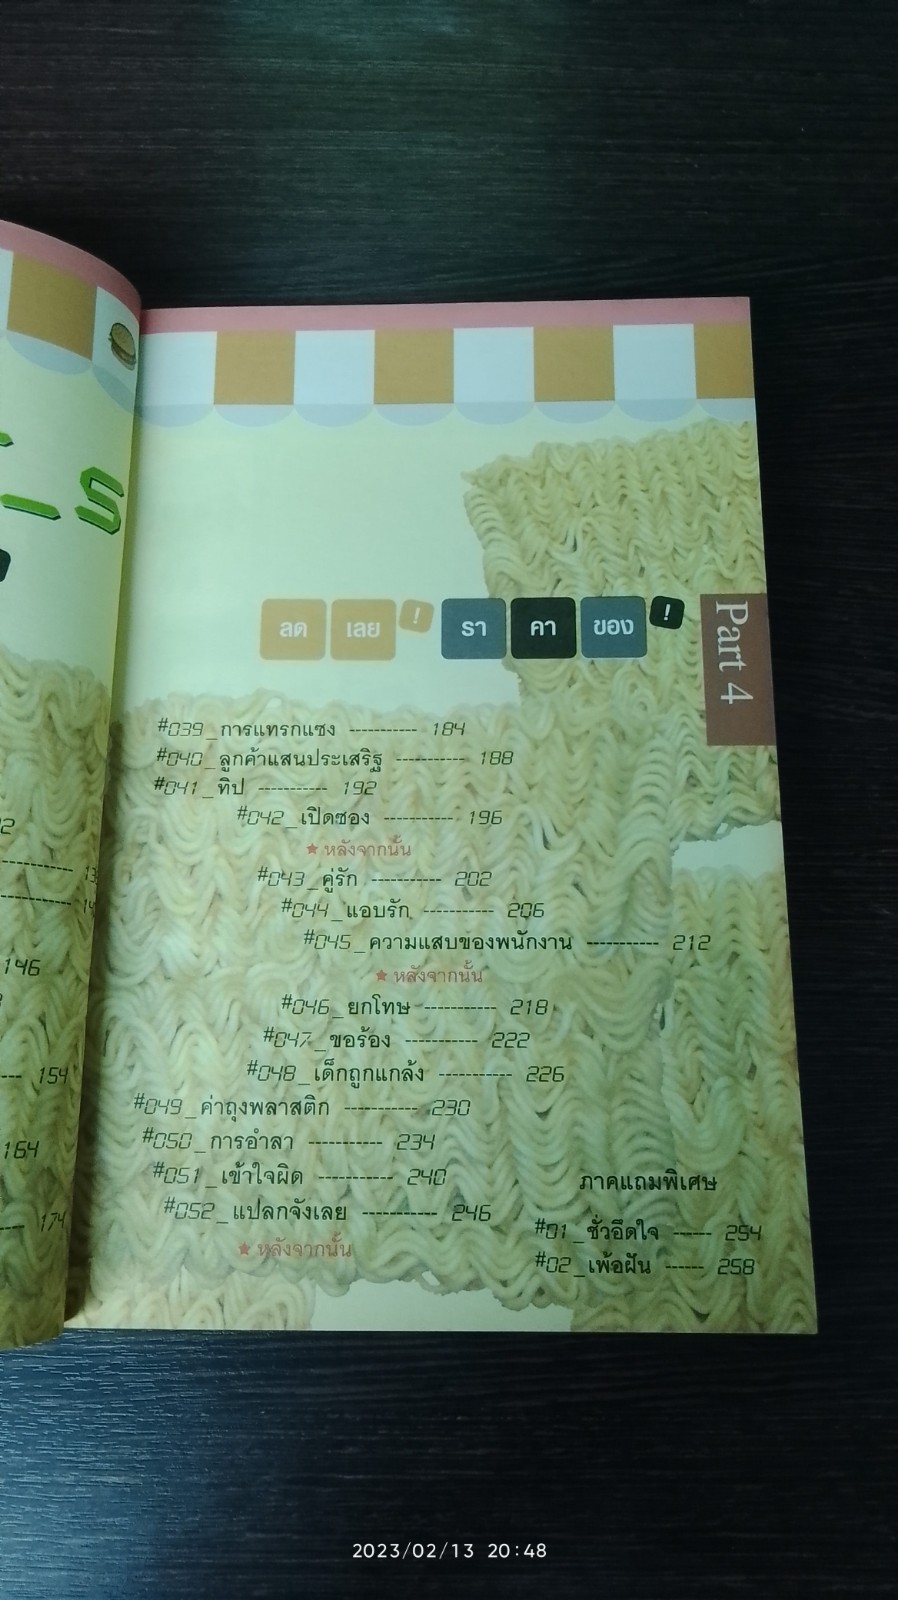 S
ลด เลย ! รา คา ของ !
Part 4
#039_การแทรกแซง ----------- 184
#040_ลูกค้าแสนประเสริฐ ----------- 188
#041_ทิป ----------- 192
#042_เปิดซอง ----------- 196
★ หลังจากนั้น
#043_คู่รัก ----------- 202
#044_แอบรัก ----------- 206
#045_ความแสบของพนักงาน ----------- 212
★ หลังจากนั้น
#046_ยกโทษ ----------- 218
#047_ขอร้อง ----------- 222
#048_เด็กถูกแกล้ง ----------- 226
#049_ค่าถุงพลาสติก ----------- 230
#050_การอำลา ----------- 234
#051_เข้าใจผิด ----------- 240
#052_แปลกจังเลย ----------- 246
★ หลังจากนั้น
ภาคแถมพิเศษ
#01_ชั่วอึดใจ ------ 254
#02_เพ้อฝัน ------ 258
146
154
164
174
2023/02/13 20:48